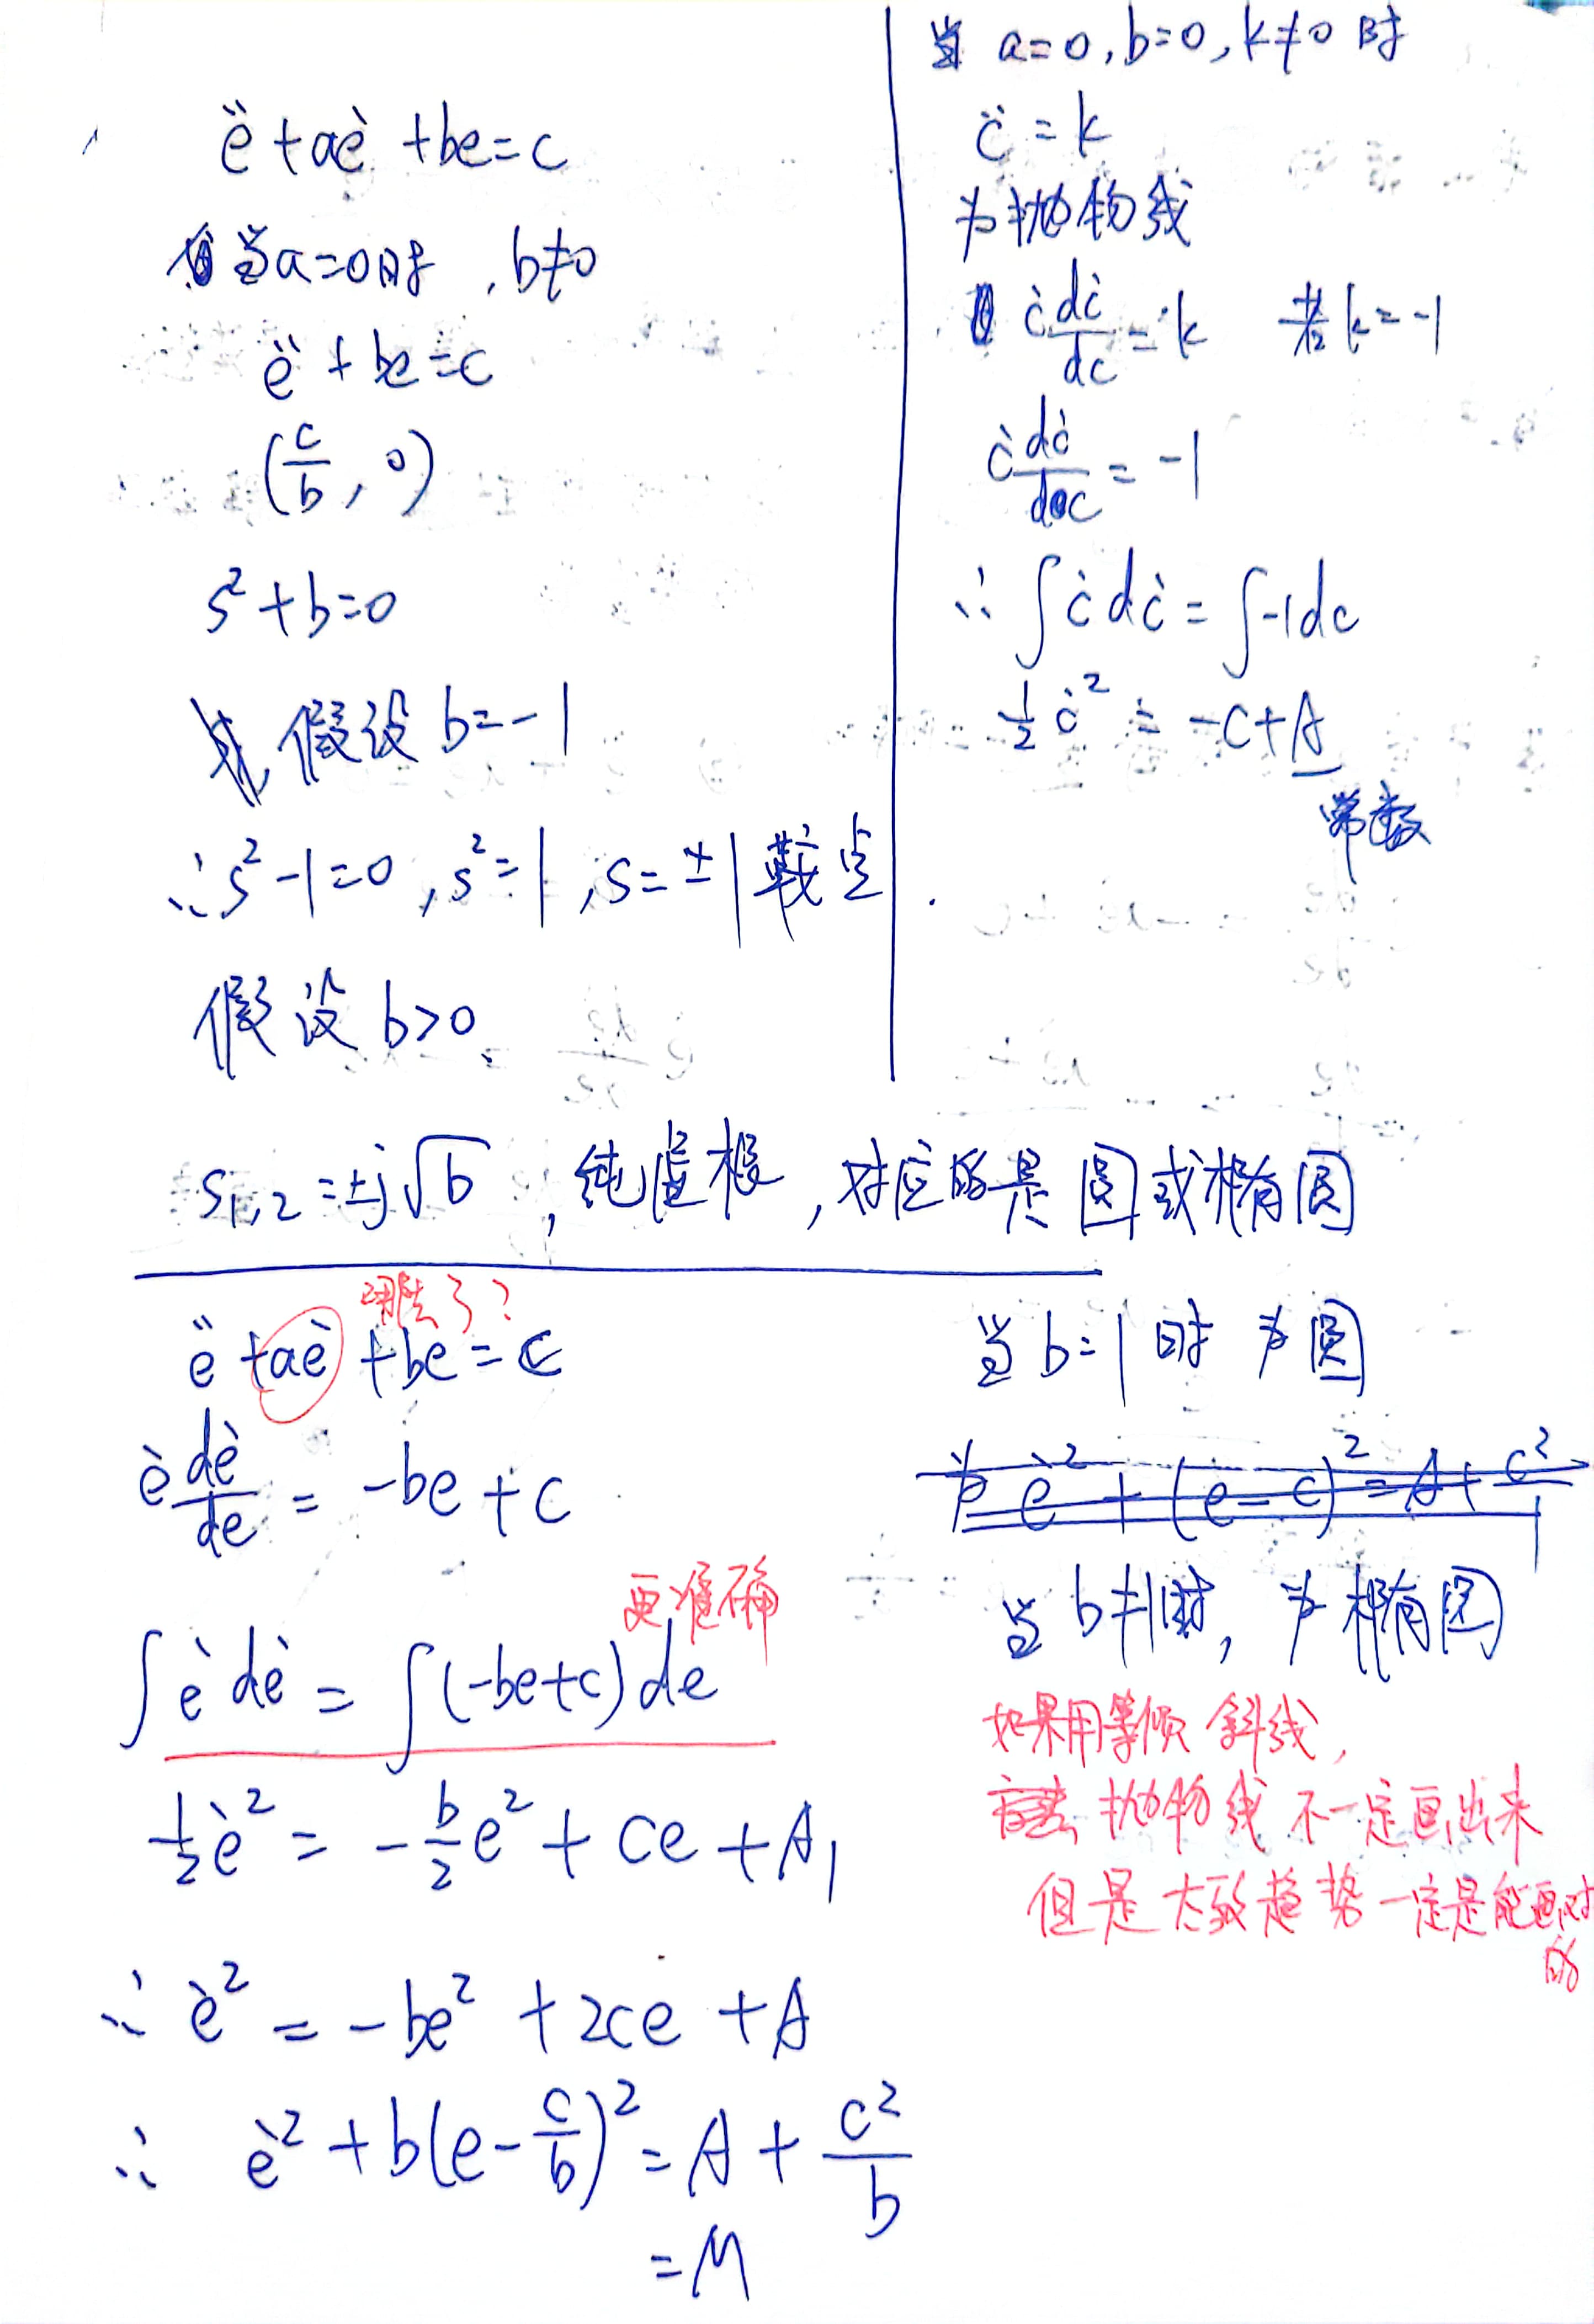 ë + aė + be = c
当a=0时, b≠0
ë + be = c
(c/b, 0)
s² + b = 0
假设 b = -1
∴ s² - 1 = 0, s² = 1, s = ±1 鞍点
假设 b > 0
当 a=0, b=0, k≠0 时
c̈ = k
为抛物线
ċ dċ/dc = k 若 k = -1
ċ dċ/dc = -1
∴ ∫ċ dċ = ∫-1dc
½ċ² = -c + A
常数
s₁,₂ = ±j√b, 纯虚根, 对应的是圆或椭圆
哪去了?
ë + aė + be = c
ė dė/de = -be + c
更准确
∫ė dė = ∫(-be+c)de
½ė² = -b/2 e² + ce + A₁
∴ ė² = -be² + 2ce + A
∴ ė² + b(e - c/b)² = A + c²/b
= M
当 b=1 时 为圆
为 ė² + (e - c)² = A + c²/1
当 b≠1时, 为椭圆
如果用等倾斜线,
抛物线不一定画出来
但是大致趋势一定是能画对
的